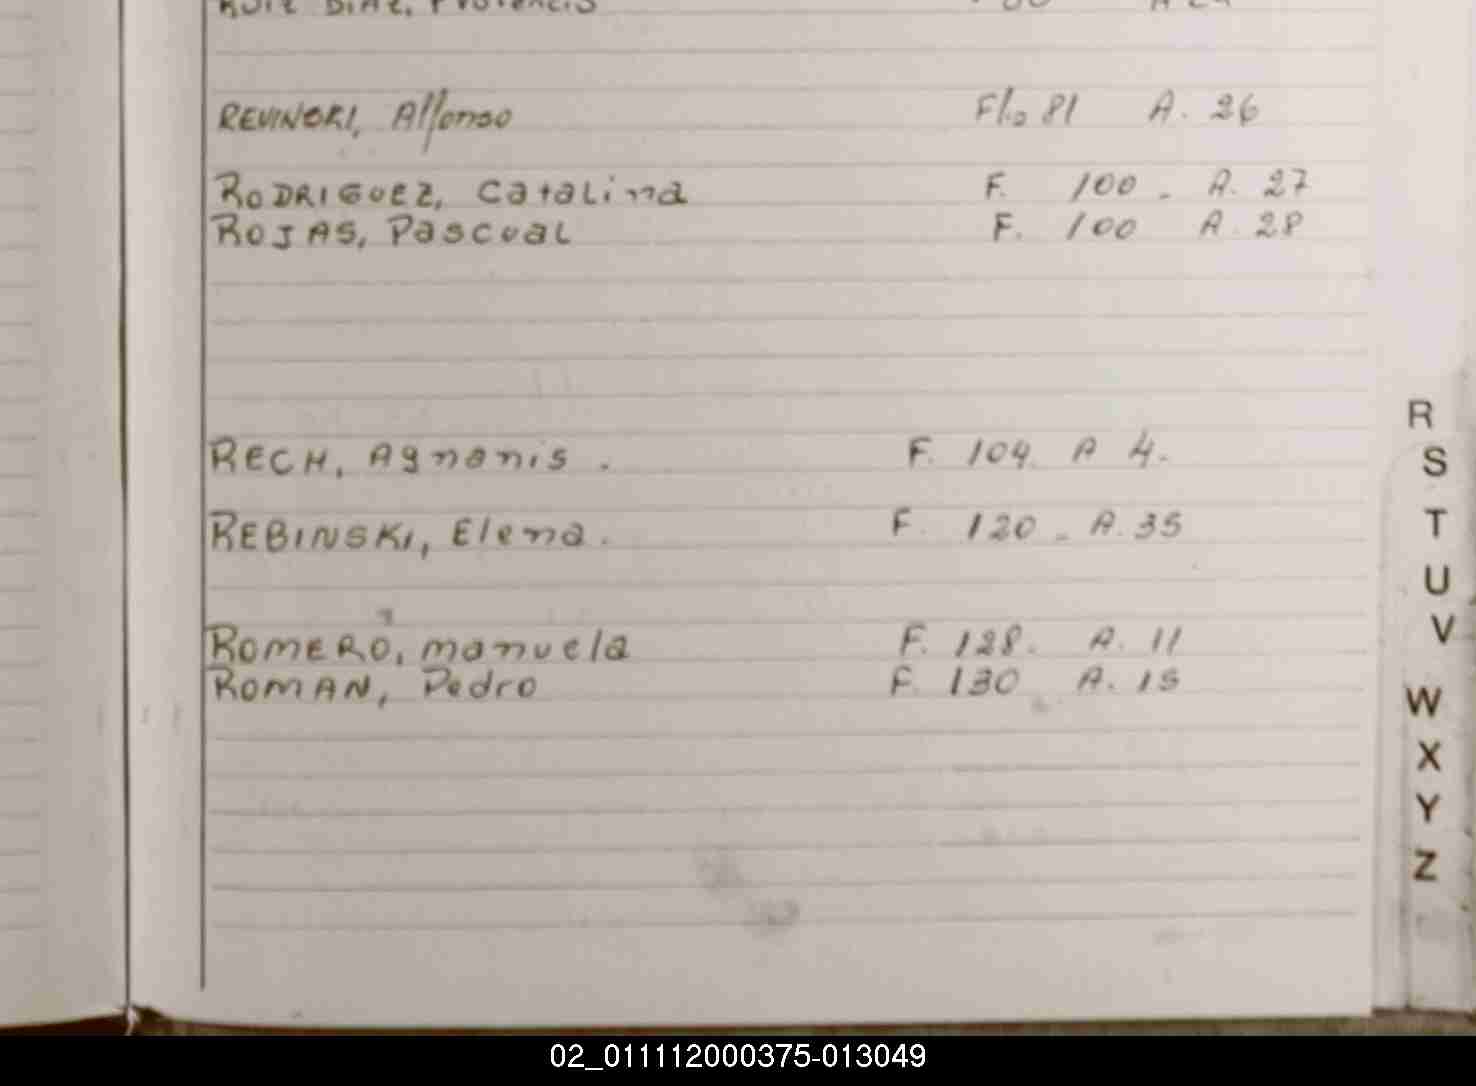 RUIZ DIAZ,
REVINSKI, Alfonso Flio 81 A. 26
RODRIGUEZ, Catalina F. 100 - A. 27
ROJAS, Pascual F. 100 A. 28
RECH, Agnanis. F. 104. A 4.
REBINSKI, Elena. F. 120 - A. 35
ROMERO, manuela F. 128. A. 11
ROMAN, Pedro F. 130 A. 15
R
S
T
U
V
W
X
Y
Z
02_011112000375-013049